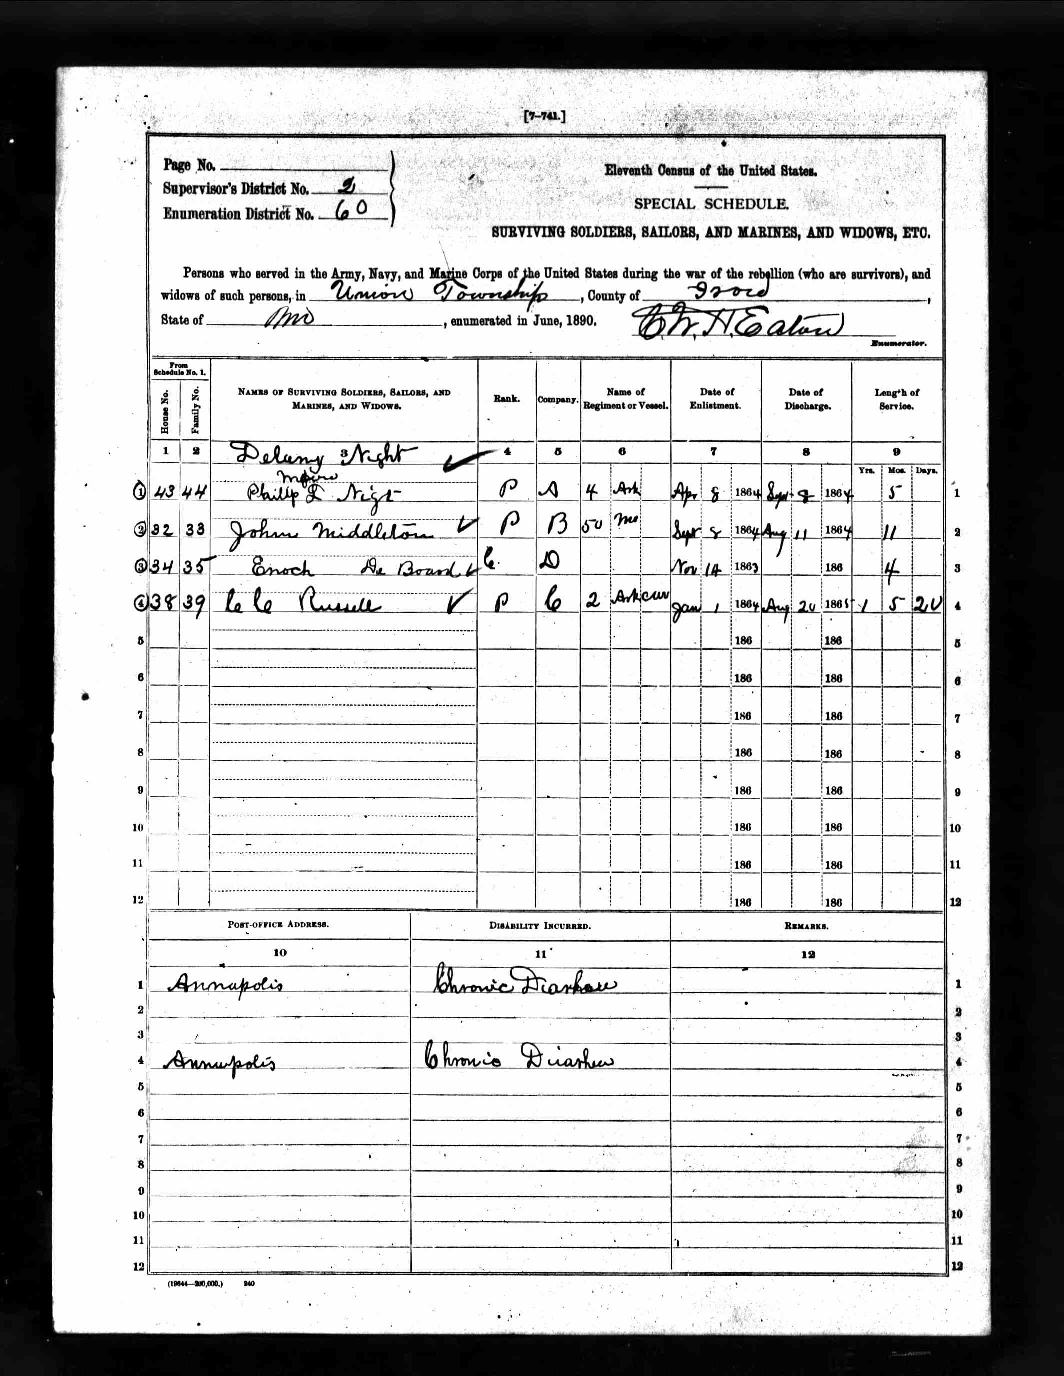 [7-741.]
Page No.
Supervisor's District No. 2
Enumeration District No. 60
Eleventh Census of the United States.
SPECIAL SCHEDULE.
SURVIVING SOLDIERS, SAILORS, AND MARINES, AND WIDOWS, ETC.
Persons who served in the Army, Navy, and Marine Corps of the United States during the war of the rebellion (who are survivors), and
widows of such persons, in Union Township, County of
State of Mo, enumerated in June, 1890. C. W. H. Eaton
Enumerator.
From Schedule No. 1.
House No. Family No. NAMES OF SURVIVING SOLDIERS, SAILORS, AND MARINES, AND WIDOWS. Rank. Company. Name of Regiment or Vessel. Date of Enlistment. Date of Discharge. Length of Service.
1 2 3 4 5 6 7 8 9
Delany Night
Yrs. Mos. Days.
1 43 44 Philip L Nigt P A 4 Ark Apr 8 1864 Sept 8 1864 5 1
2 32 33 John Middleton P B 50 Mo Sept 8 1864 Aug 11 1864 11 2
3 34 35 Enoch De Board C D Nov 14 1863 186 4 3
4 38 39 Russell P C 2 Jan 1 1864 Aug 20 1865 1 5 20 4
5 186 186 5
6 186 186 6
7 186 186 7
8 186 186 8
9 186 186 9
10 186 186 10
11 186 186 11
12 186 186 12
POST-OFFICE ADDRESS. DISABILITY INCURRED. REMARKS.
10 11 12
1 Annapolis Chronic Diarhaee 1
2 2
3 3
4 Annapolis Chronic Diarhea 4
5 5
6 6
7 7
8 8
9 9
10 10
11 11
12 12
(19644—200,000.) 240